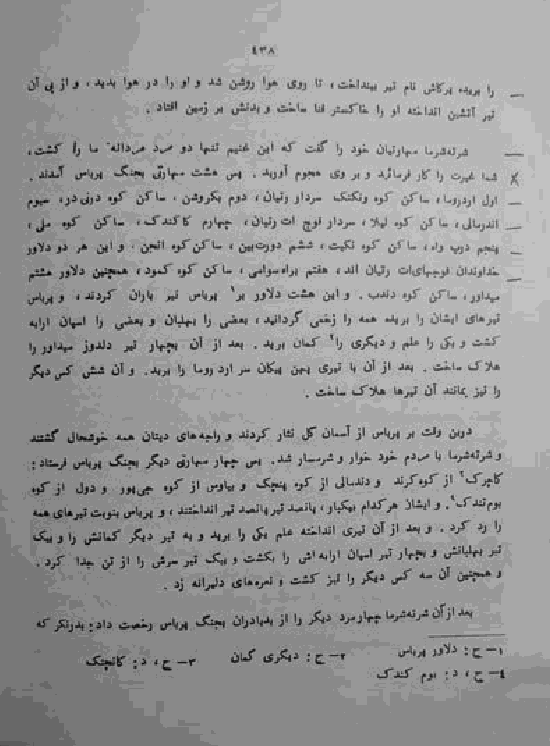 ۴۳۸
را بریده پرکاش نام تیر بینداخت، تا روی هوا روشن شد و او را در هوا بدید، و از پی آن
تیر آتشین انداخته او را خاکستر فنا ساخت و بدنش بر زمین افتاد.
شرته‌شرما سهاوتیان خود را گفت که این غنیم تنها دو صد مردانه ما را کشت،
شما غیرت را کار فرمائید و بر وی هجوم آورید. پس هشت سهارتی بجنگ پریاس آمدند.
اول اردروما، ساکن کوه ونکتک سردار رتیان، دوم بکروشن، ساکن کوه درنی‌در، سیوم
اندرمالی، ساکن کوه نیلا، سردار فوج ات رتیان، چهارم کاکندک، ساکن کوه ملی،
پنجم دوپ راد، ساکن کوه تکیت، ششم دورت‌بین، ساکن کوه انجن، و این هر دو دلاور
خداوندان فوجهای‌ات رتیان اند، هفتم براه‌سوامی، ساکن کوه کمود، همچنین دلاور هشتم
میداور، ساکن کوه دندب. و این هشت دلاور بر۱ پریاس تیر باران کردند، و پریاس
تیرهای ایشان را بریده همه را زخمی گردانید، بعضی را بهلبان و بعضی را اسپان ارابه
کشت و یکی را علم و دیگری را۲ کمان برید. بعد از آن بچهار تیر دلدوز میداور را
هلاک ساخت. بعد از آن با تیری پهن پیکان سر اردروما را برید. و آن شش کس دیگر
را نیز بمانند آن تیرها هلاک ساخت.
دوین وقت بر پریاس از آسمان گل نثار کردند و راجه‌های دیتان همه خوشحال گشتند
و شرته‌شرما با مردم خود خوار و شرمسار شد. پس چهار سهارتی دیگر بجنگ پریاس فرستاد:
کاچرک۳ از کوه کرند و دندمالی از کوه پنچک و بیاوس از کوه جی‌پور و دول از کوه
بوم‌تندک۴. و ایشان هرکدام بیکبار، پانصد تیر پانصد تیر انداختند، و پریاس بنوبت تیرهای همه
را رد کرد. و بعد از آن تیری انداخته علم یکی را برید و به تیر دیگر کمانش را و بیک
تیر بهلبانش و بچهار تیر اسپان ارابه‌اش را بکشت و بیک تیر سرش را از تن جدا کرد.
و همچنین آن سه کس دیگر را نیز کشت و نعره‌های دلیرانه زد.
بعد از آن شرته‌شرما چهار مرد دیگر را از بدیادران بجنگ پریاس رخصت داد: بدرنکر که
۱- ح: دلاور پریاس ۲- ح: دیگری کمان ۳- ح، د: کالجنک
۴- ح، د: بوم کندک